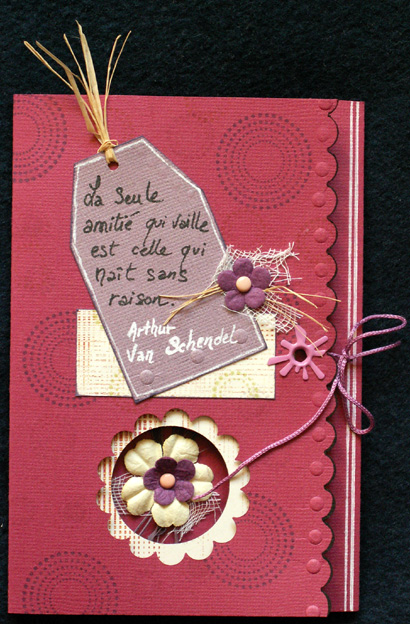 La seule
amitié qui vaille
est celle qui
naît sans
raison.
Arthur
Van Schendel